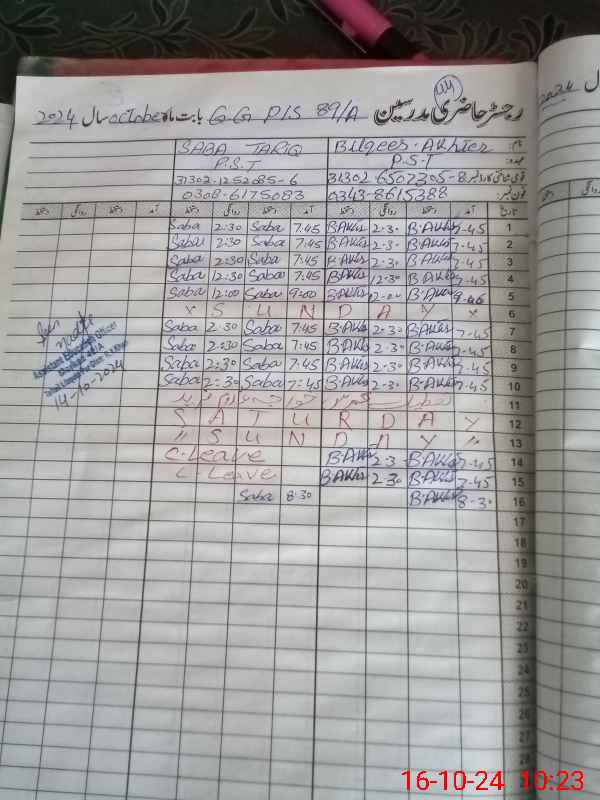 44
رجسٹر حاضری مدرسین GG P/S 89/A بابت ماہ october سال 2024
نام: Bilqees. Akhter SABA TARIQ
عہدہ: P.S.T P.S.T
قومی شناختی کارڈ نمبر 31302 6507305-8 31302-1252085-6
فون نمبر: 0343-8615388 0308-6175083
تاریخ آمد دستخط روانگی دستخط آمد دستخط روانگی دستخط آمد دستخط روانگی دستخط
1 7-45 B.Akhter 2-30 B.Akhter 7:45 Saba 2:30 Saba
2 7-45 B.Akhter 2-30 B.Akhter 7:45 Saba 2:30 Saba
3 7-45 B.Akhter 2-30 B.Akhter 7:45 Saba 2:30 Saba
4 7-45 B.Akhter 12-30 B.Akhter 7:45 Saba 12:30 Saba
5 9-00 B.Akhter 12-00 B.Akhter 9:00 Saba 12:00 Saba
6 x S U N D A Y x
7 7-45 B.Akhter 2-30 B.Akhter 7:45 Saba 2:30 Saba
8 7-45 B.Akhter 2-30 B.Akhter 7:45 Saba 2:30 Saba
9 7-45 B.Akhter 2-30 B.Akhter 7:45 Saba 2:30 Saba
10 7-45 B.Akhter 2-30 B.Akhter 7:45 Saba 2:30 Saba
11
12 S A T U R D A Y
13 " S U N D A Y "
14 7-45 B.Akhter 2-30 B.Akhter C.Leave
15 7-45 B.Akhter 2-30 B.Akhter C Leave
16 8-30 B.Akhter 8:30 Saba
17
18
19
20
21
22
23
24
25
26
27
28
Seen
Assistant Education Officer
14-10-2024
2024 سال
16-10-24 10:23